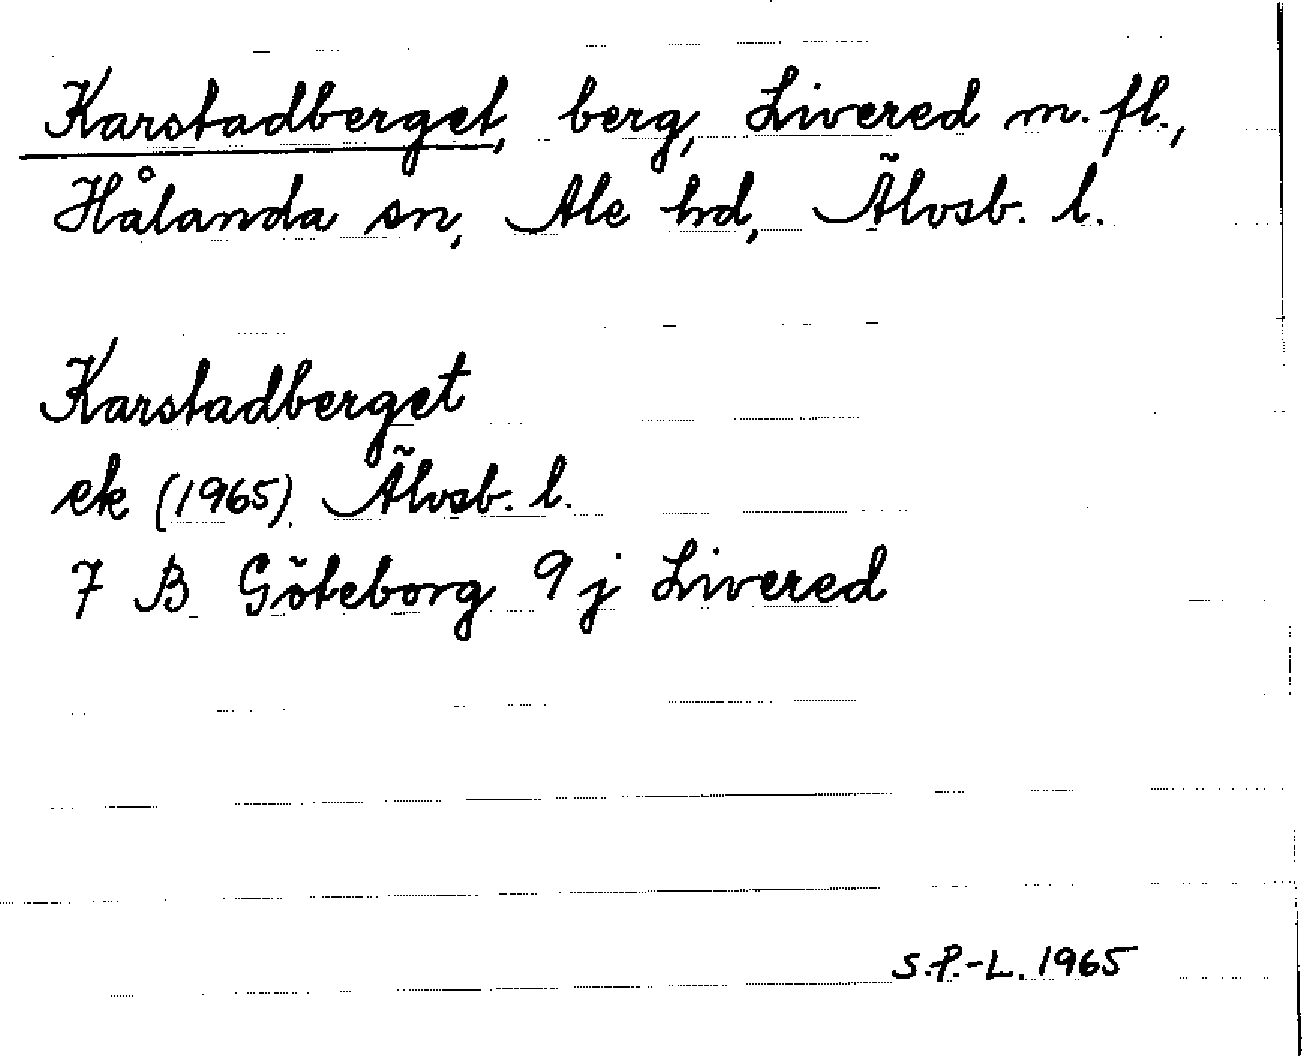 Karstadberget, berg, Livered m. fl.,
Hålanda sn, Ale hd, Älvsb. l.
Karstadberget
ek (1965) Älvsb. l.
7 B Göteborg 9 j Livered
S.P.-L. 1965